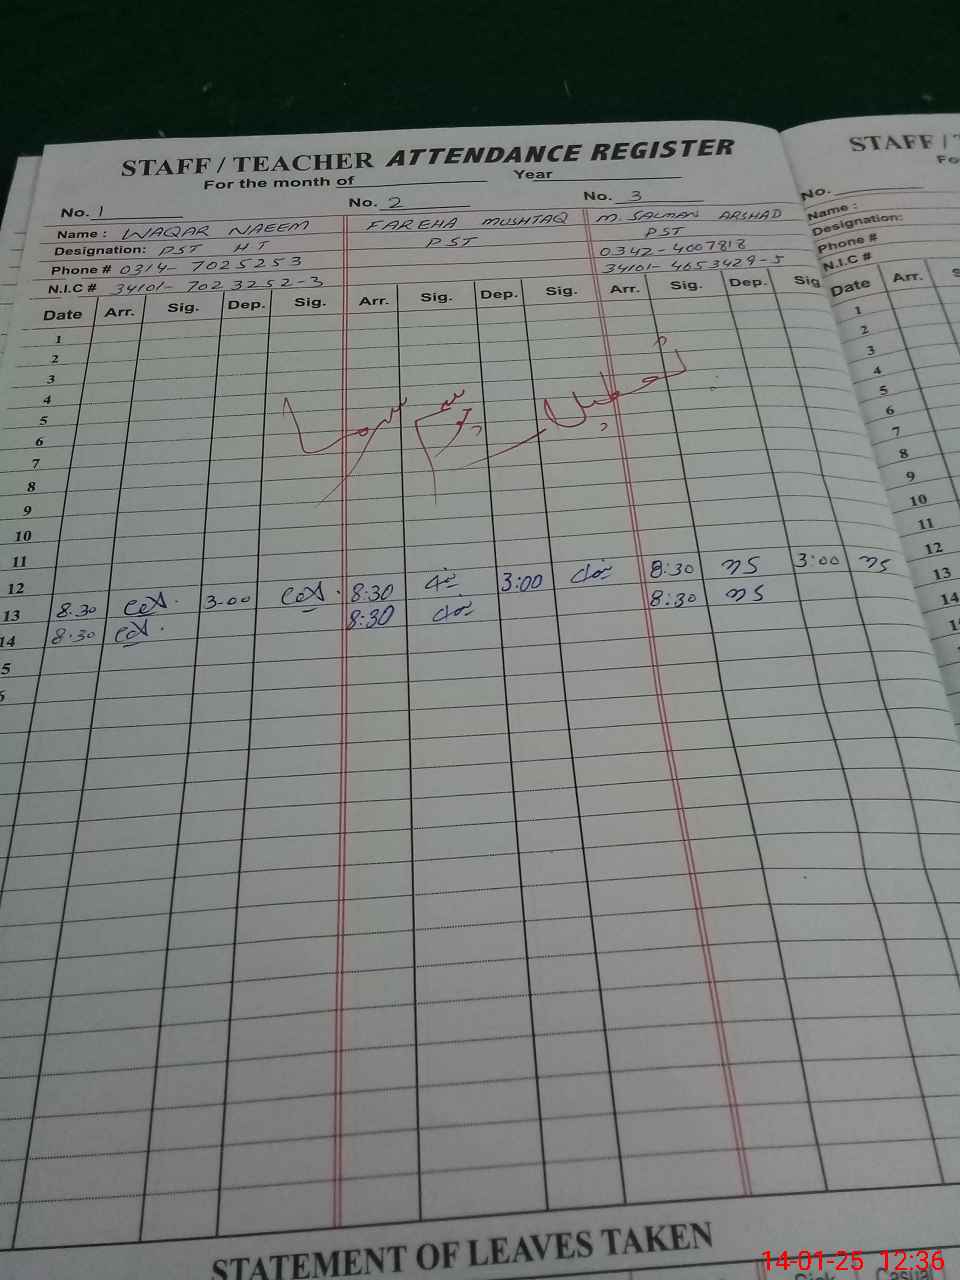 STAFF / TEACHER ATTENDANCE REGISTER
For the month of Year
No. 1 No. 2 No. 3
Name : WAQAR NAEEM FAREHA MUSHTAQ M. SALMAN ARSHAD
Designation: PST HT PST PST
Phone # 0314- 7025253 0342-4007818
N.I.C # 34101- 7023252-3 34101- 4653429-5
Date Arr. Sig. Dep. Sig. Arr. Sig. Dep. Sig. Arr. Sig. Dep. Sig
1
2
3
4
تعطیل موسم سرما
5
6
7
8
9
10
11
12
13 8.30 3.00 8:30 3:00 8:30 3:00
14 8.30 8:30 8:30
5
STATEMENT OF LEAVES TAKEN
STAFF /
No.
Name :
Designation:
Phone #
N.I.C #
Date Arr.
1
2
3
4
5
6
7
8
9
10
11
12
13
14
Casual
14-01-25 12:36